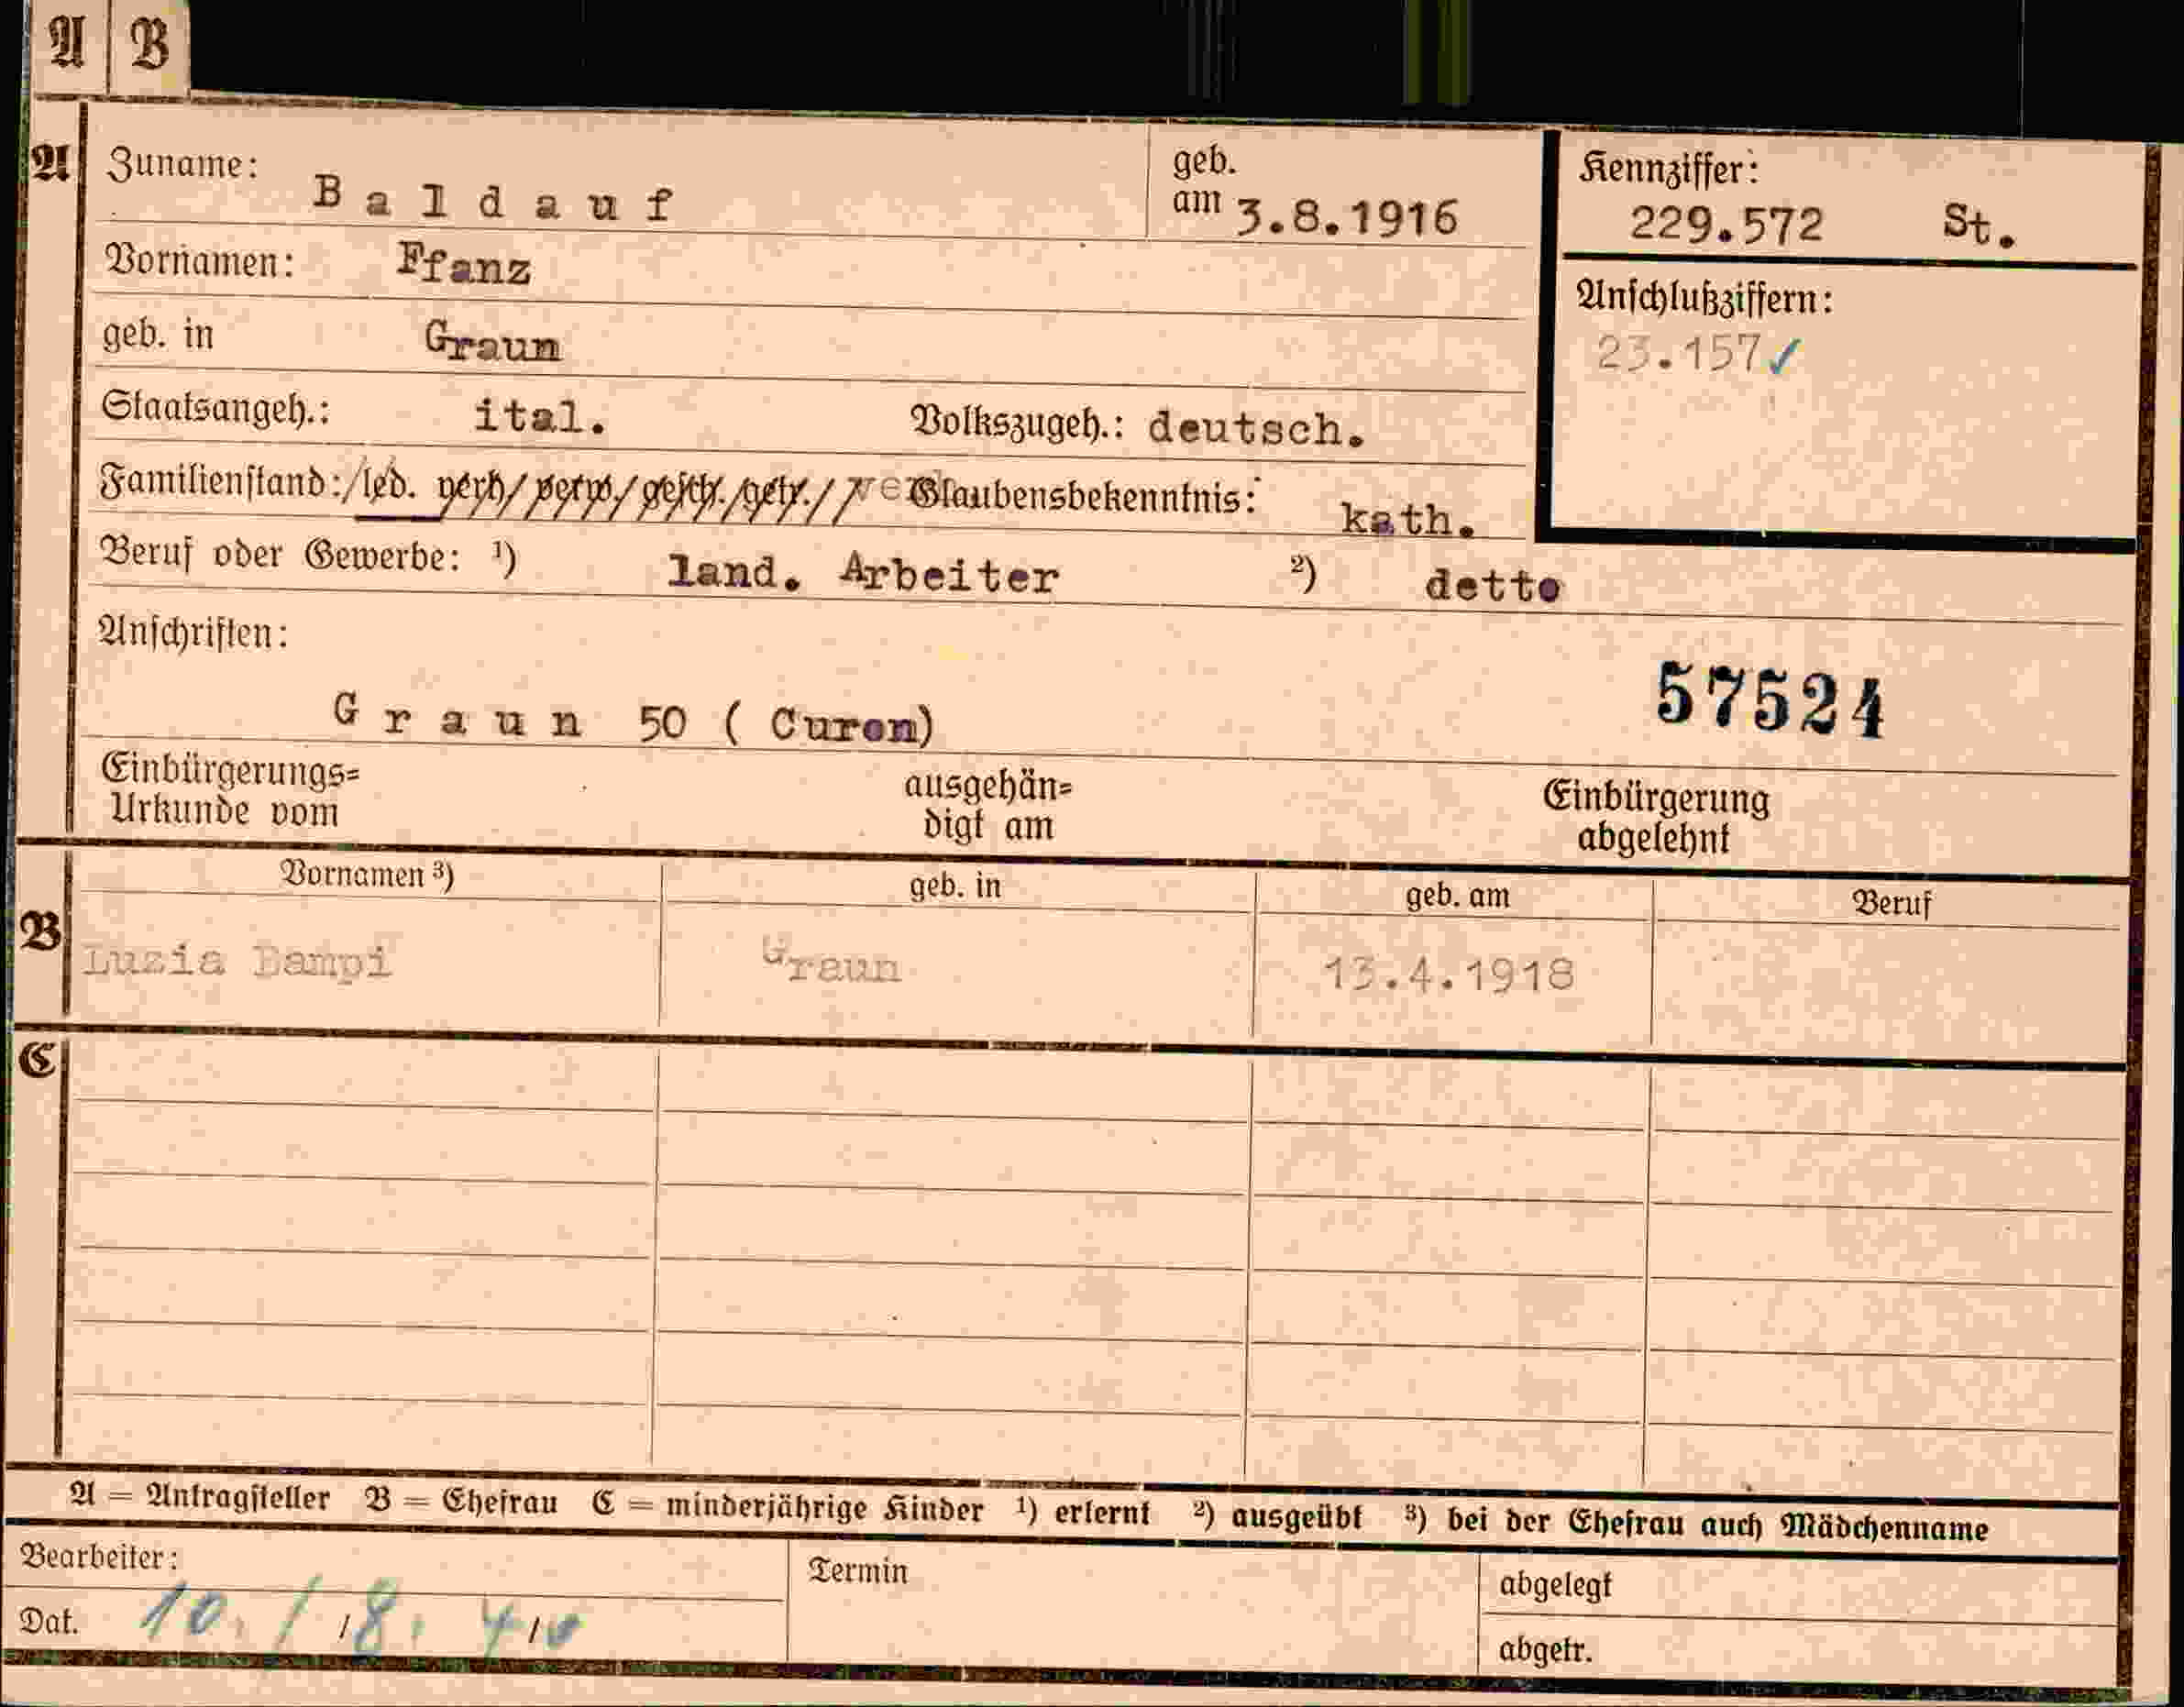 A B
A Zuname: Baldauf geb. am 3.8.1916 Kennziffer: 229.572 St.
Vornamen: Ffanz
Anschlußziffern:
geb. in Graun 23.157✓
Staatsangeh.: ital. Volkszugeh.: deutsch.
Familienstand:/led. verh/verw./gesch./getr./ Glaubensbekenntnis: kath.
Beruf oder Gewerbe: ¹) land. Arbeiter ²) detto
Anschriften:
57524
Graun 50 ( Curon)
Einbürgerungs= ausgehän= Einbürgerung
Urkunde vom digt am abgelehnt
Vornamen ³) geb. in geb. am Beruf
B Luzia Graun 13.4.1918
C
A = Antragsteller B = Ehefrau C = minderjährige Kinder ¹) erlernt ²) ausgeübt ³) bei der Ehefrau auch Mädchenname
Bearbeiter: Termin abgelegt
Dat. 10. / 8. 40 abgetr.